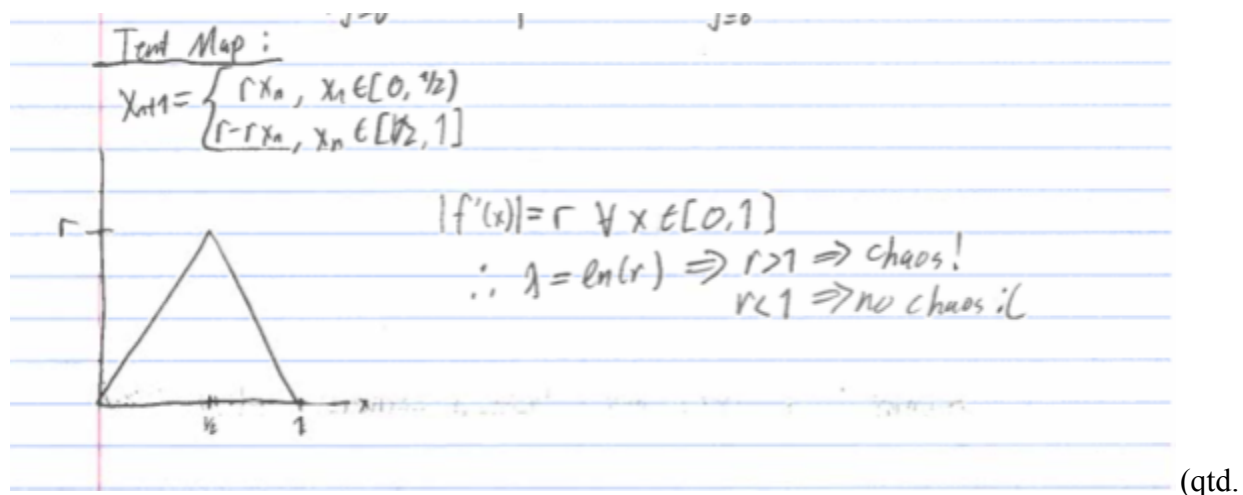 j=0 j=0
Tent Map:
Xn+1 = { rxn, xn ∈ [0, 1/2)
r-rxn, xn ∈ [1/2, 1]
r
|f'(x)| = r ∀ x ∈ [0,1]
∴ λ = ln(r) ⇒ r>1 ⇒ chaos!
r<1 ⇒ no chaos :(
x
1/2 1
(qtd.